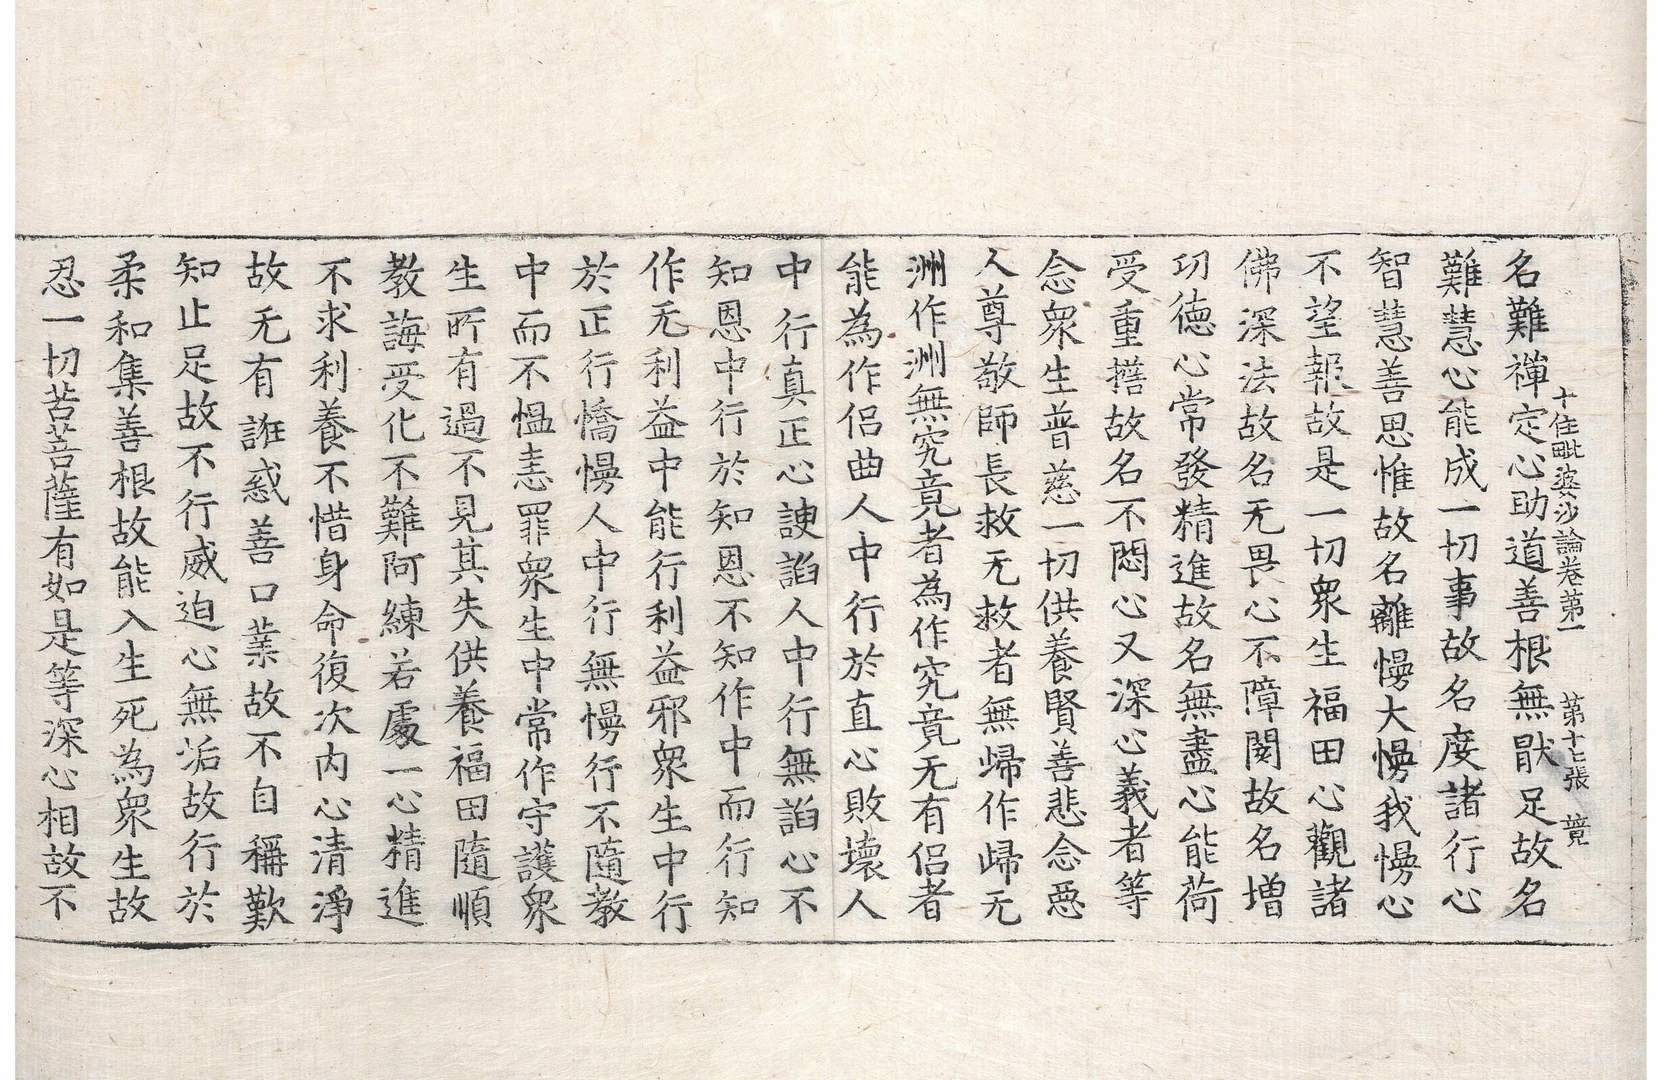 十住毗婆沙論卷第一　第十七張　竟
名難禪定心助道善根無猒足故名
難慧心能成一切事故名度諸行心
智慧善思惟故名離慢大慢我慢心
不望報故是一切衆生福田心觀諸
佛深法故名无畏心不障閡故名增
功德心常發精進故名無盡心能荷
受重擔故名不悶心又深心義者等
念衆生普慈一切供養賢善悲念惡
人尊敬師長救无救者無歸作歸无
洲作洲無究竟者為作究竟无有侣者
能為作侣曲人中行於直心敗壞人
中行真正心諛諂人中行無諂心不
知恩中行於知恩不知作中而行知
作无利益中能行利益邪衆生中行
於正行憍慢人中行無慢行不隨教
中而不愠恚罪衆生中常作守護衆
生所有過不見其失供養福田隨順
教誨受化不難阿練若處一心精進
不求利養不惜身命復次内心清淨
故无有誑惑善口業故不自稱歎
知止足故不行威迫心無垢故行於
柔和集善根故能入生死為衆生故
忍一切苦菩薩有如是等深心相故不